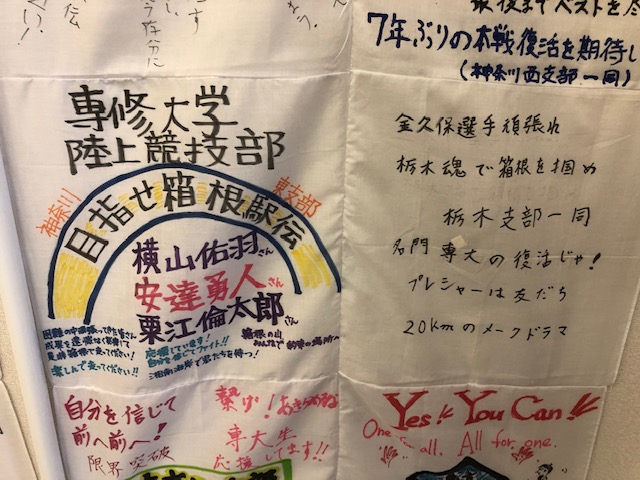 最後までベストを尽
7年ぶりの本戦復活を期待し
(神奈川西支部一同)
専修大学
陸上競技部
神奈川
東支部
目指せ箱根駅伝
横山佑羽さん
安達勇人さん
粟江倫太郎さん
楽しんで走ってください!!
応援しています!
自分を信じてファイト!!
湘南海岸で君たちを待つ!
箱根の山
みんなで
金久保選手頑張れ
栃木魂で箱根を掴め
栃木支部一同
名門専大の復活じゃ!
プレシャーは友だち
20kmのメークドラマ
自分を信じて
前へ前へ!
限界突破
繋げ!あきらめるな
専大生
応援してます!!
Yes!! You Can!!
One for all, All for one.